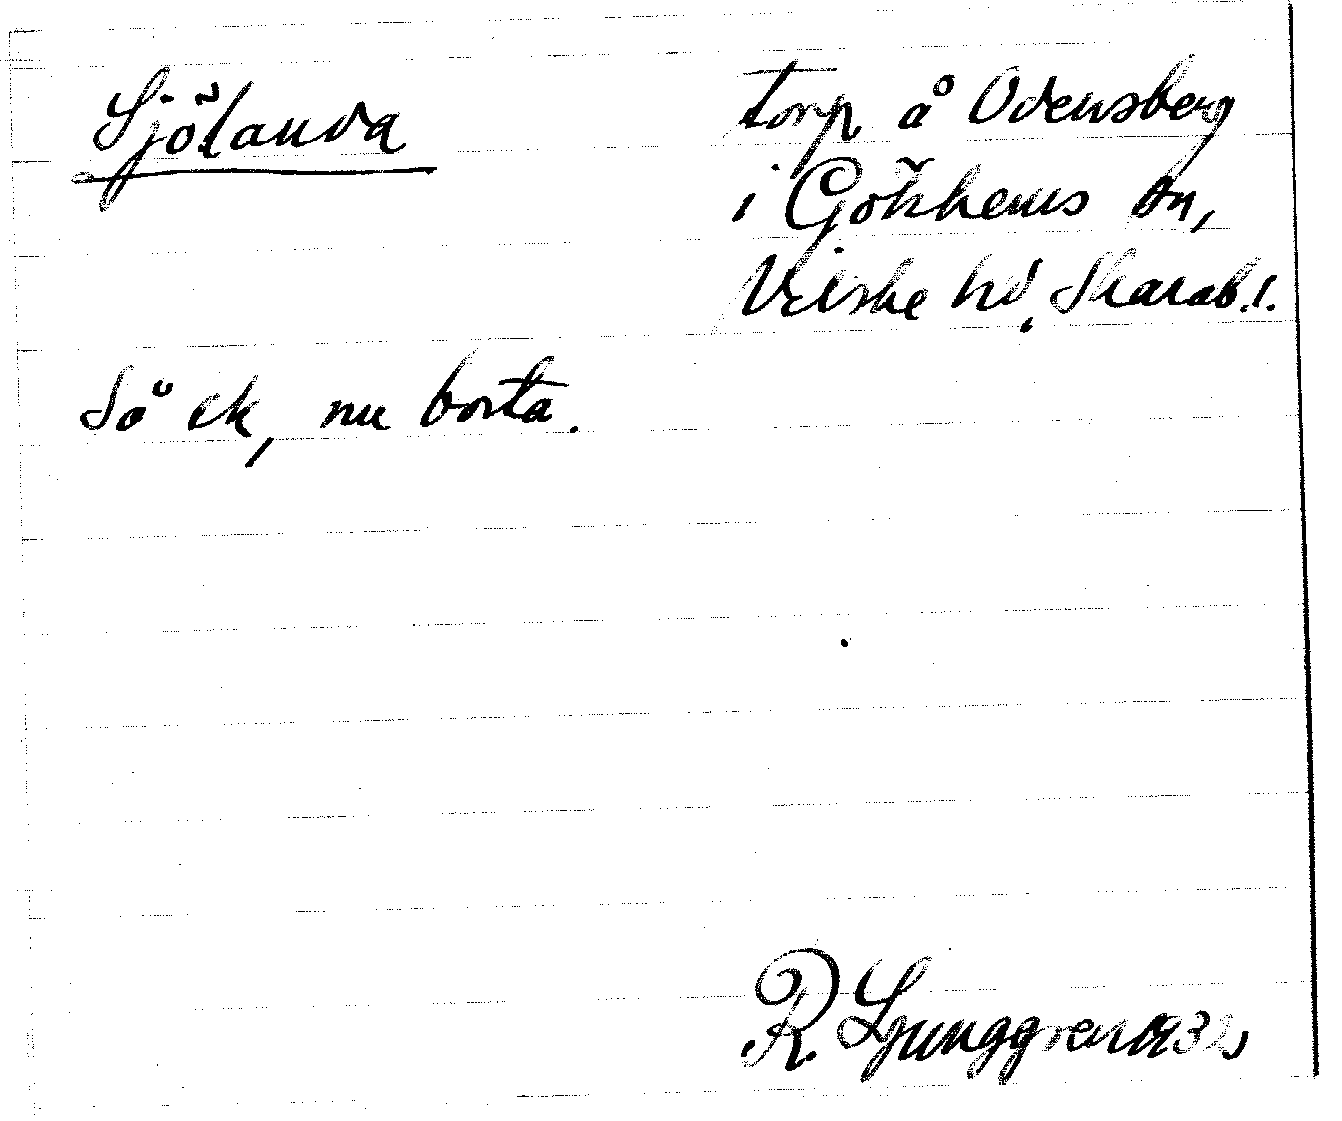 Sjölanda
torp å Odensberg
i Gökhems sn,
Vilske hd, Skarab. l.
Så ek, nu borta.
R. Ljunggren 1932